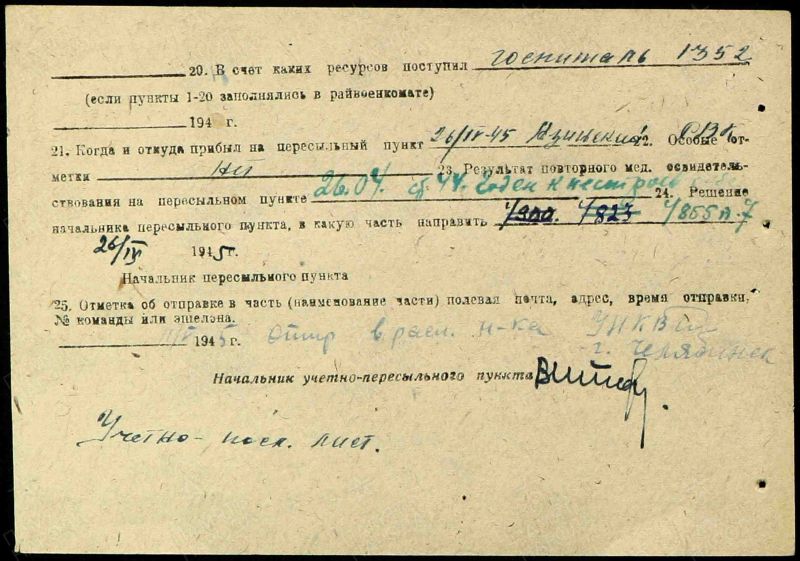 20. В счет каких ресурсов поступил госпиталь 1352
(если пункты 1-20 заполнялись в райвоенкомате)
194 г.
21. Когда и откуда прибыл на пересыльный пункт 26/IV-45 РВК 22. Особые от-
метки нет 23. Результат повторного мед. освидетель-
ствования на пересыльном пункте 26.04. ст 44. Годен к нестроев 24. Решение
начальника пересыльного пункта, в какую часть направить 4/823 4/855
26/IV 1945 г.
Начальник пересыльного пункта
25. Отметка об отправке в часть (наименование части) полевая почта, адрес, время отправки,
№ команды или эшелона.
1945 отпр в расп. н-ка УНКВД
г. Челябинск
Начальник учетно-пересыльного пункта
Учетно-посл. лист.